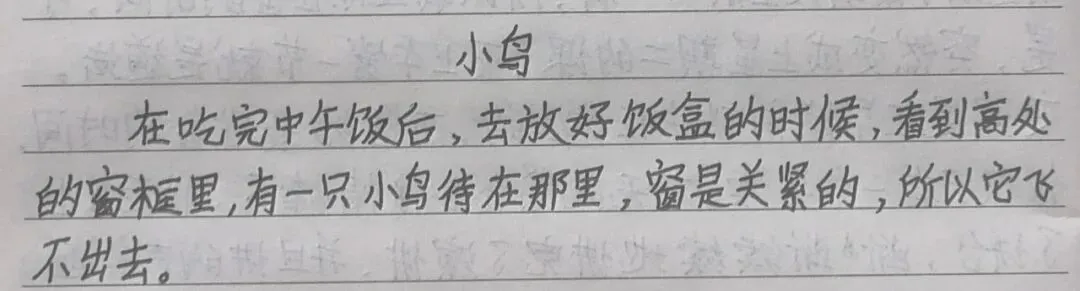 小鸟
在吃完中午饭后,去放好饭盒的时候,看到高处
的窗框里,有一只小鸟待在那里,窗是关紧的,所以它飞
不出去。